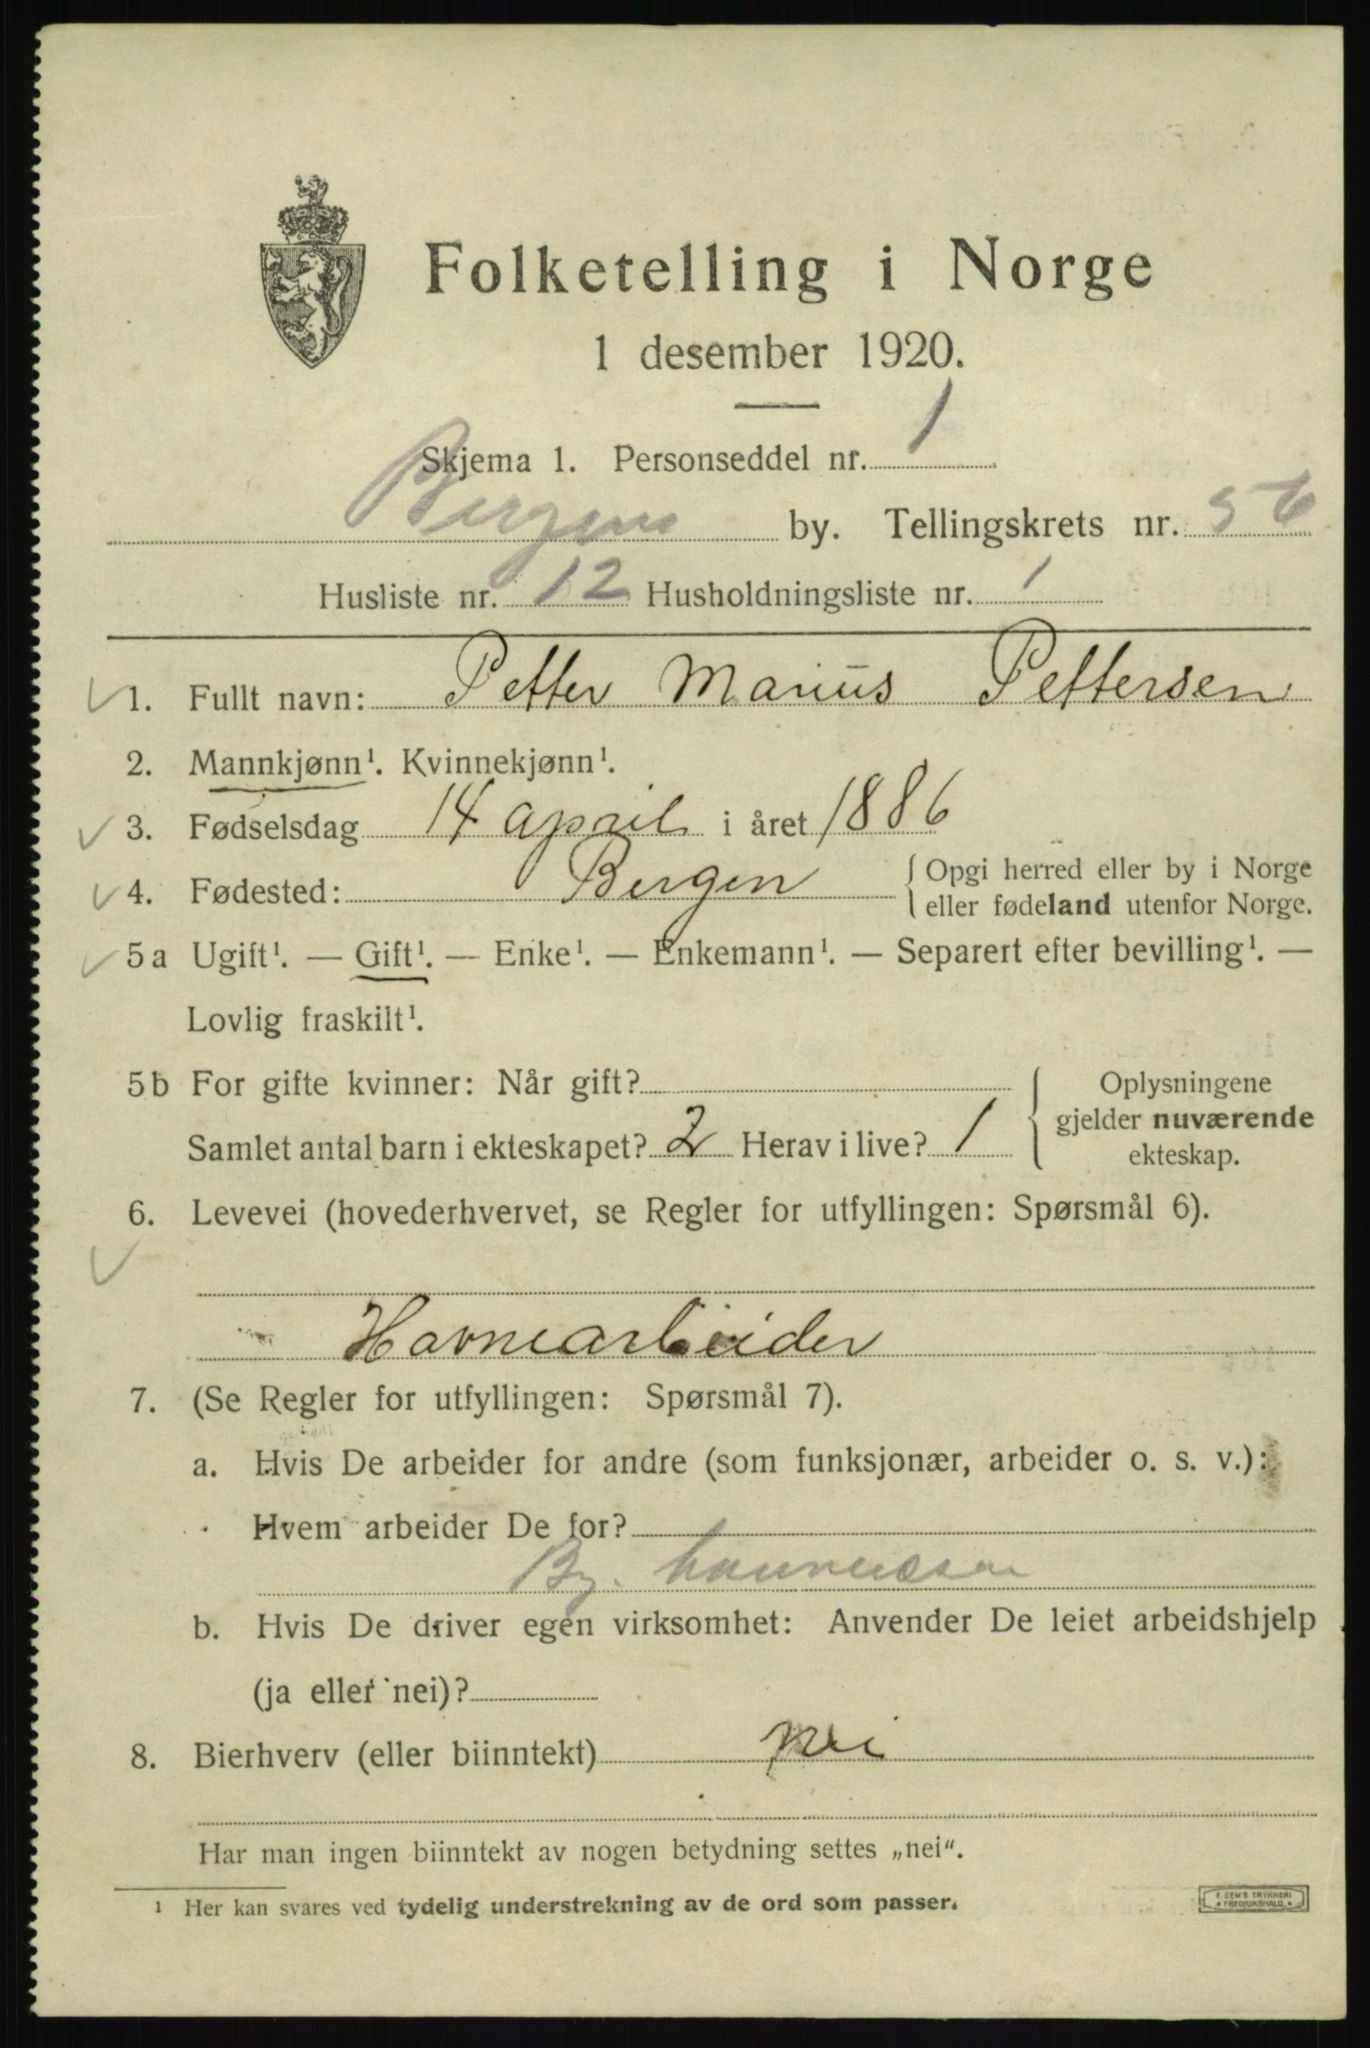 Folketelling i Norge
1 desember 1920.
Skjema 1. Personseddel nr. 1
Bergens by. Tellingskrets nr. 56
Husliste nr. 12 Husholdningsliste nr. 1
1. Fullt navn: Petter Marius Pettersen
2. Mannkjønn¹. Kvinnekjønn¹.
3. Fødselsdag 14 april i året 1886
4. Fødested: Bergen { Opgi herred eller by i Norge
eller fødeland utenfor Norge.
5a Ugift¹. — Gift¹. — Enke¹. — Enkemann¹. — Separert efter bevilling¹. —
Lovlig fraskilt¹.
5b For gifte kvinner: Når gift? { Oplysningene
gjelder nuværende
ekteskap.
Samlet antal barn i ekteskapet? 2 Herav i live? 1
6. Levevei (hovederhvervet, se Regler for utfyllingen: Spørsmål 6).
Havnearbeider
7. (Se Regler for utfyllingen: Spørsmål 7).
a. Hvis De arbeider for andre (som funksjonær, arbeider o. s. v.):
Hvem arbeider De for?
b. Hvis De driver egen virksomhet: Anvender De leiet arbeidshjelp
(ja eller nei)?
8. Bierhverv (eller biinntekt) nei
Har man ingen biinntekt av nogen betydning settes „nei“.
¹ Her kan svares ved tydelig understrekning av de ord som passer.
F. GEM'S TRYKKERI
* FREDRIKSHALD. *